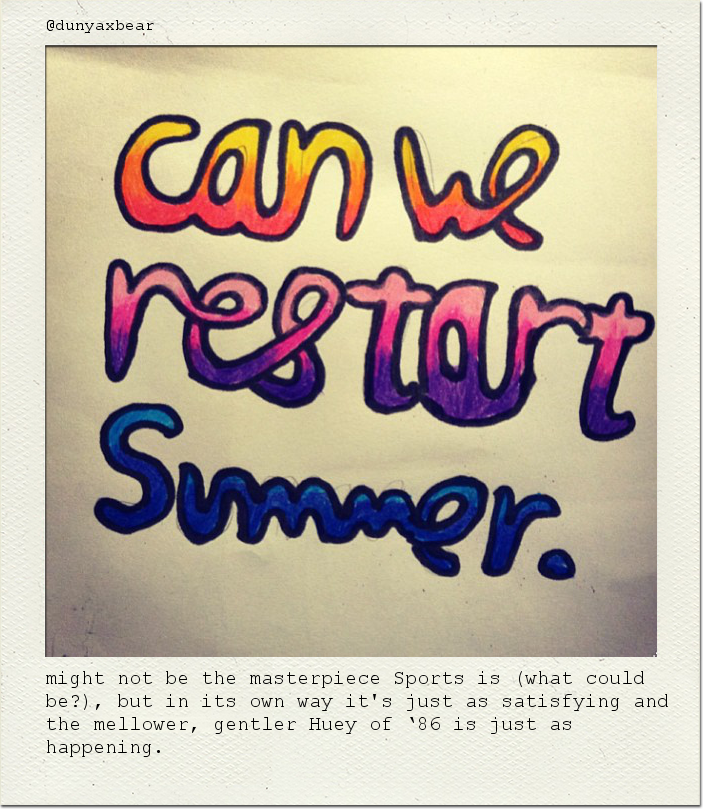 @dunyaxbear
can we
restart
Summer.
might not be the masterpiece Sports is (what could
be?), but in its own way it's just as satisfying and
the mellower, gentler Huey of ‘86 is just as
happening.